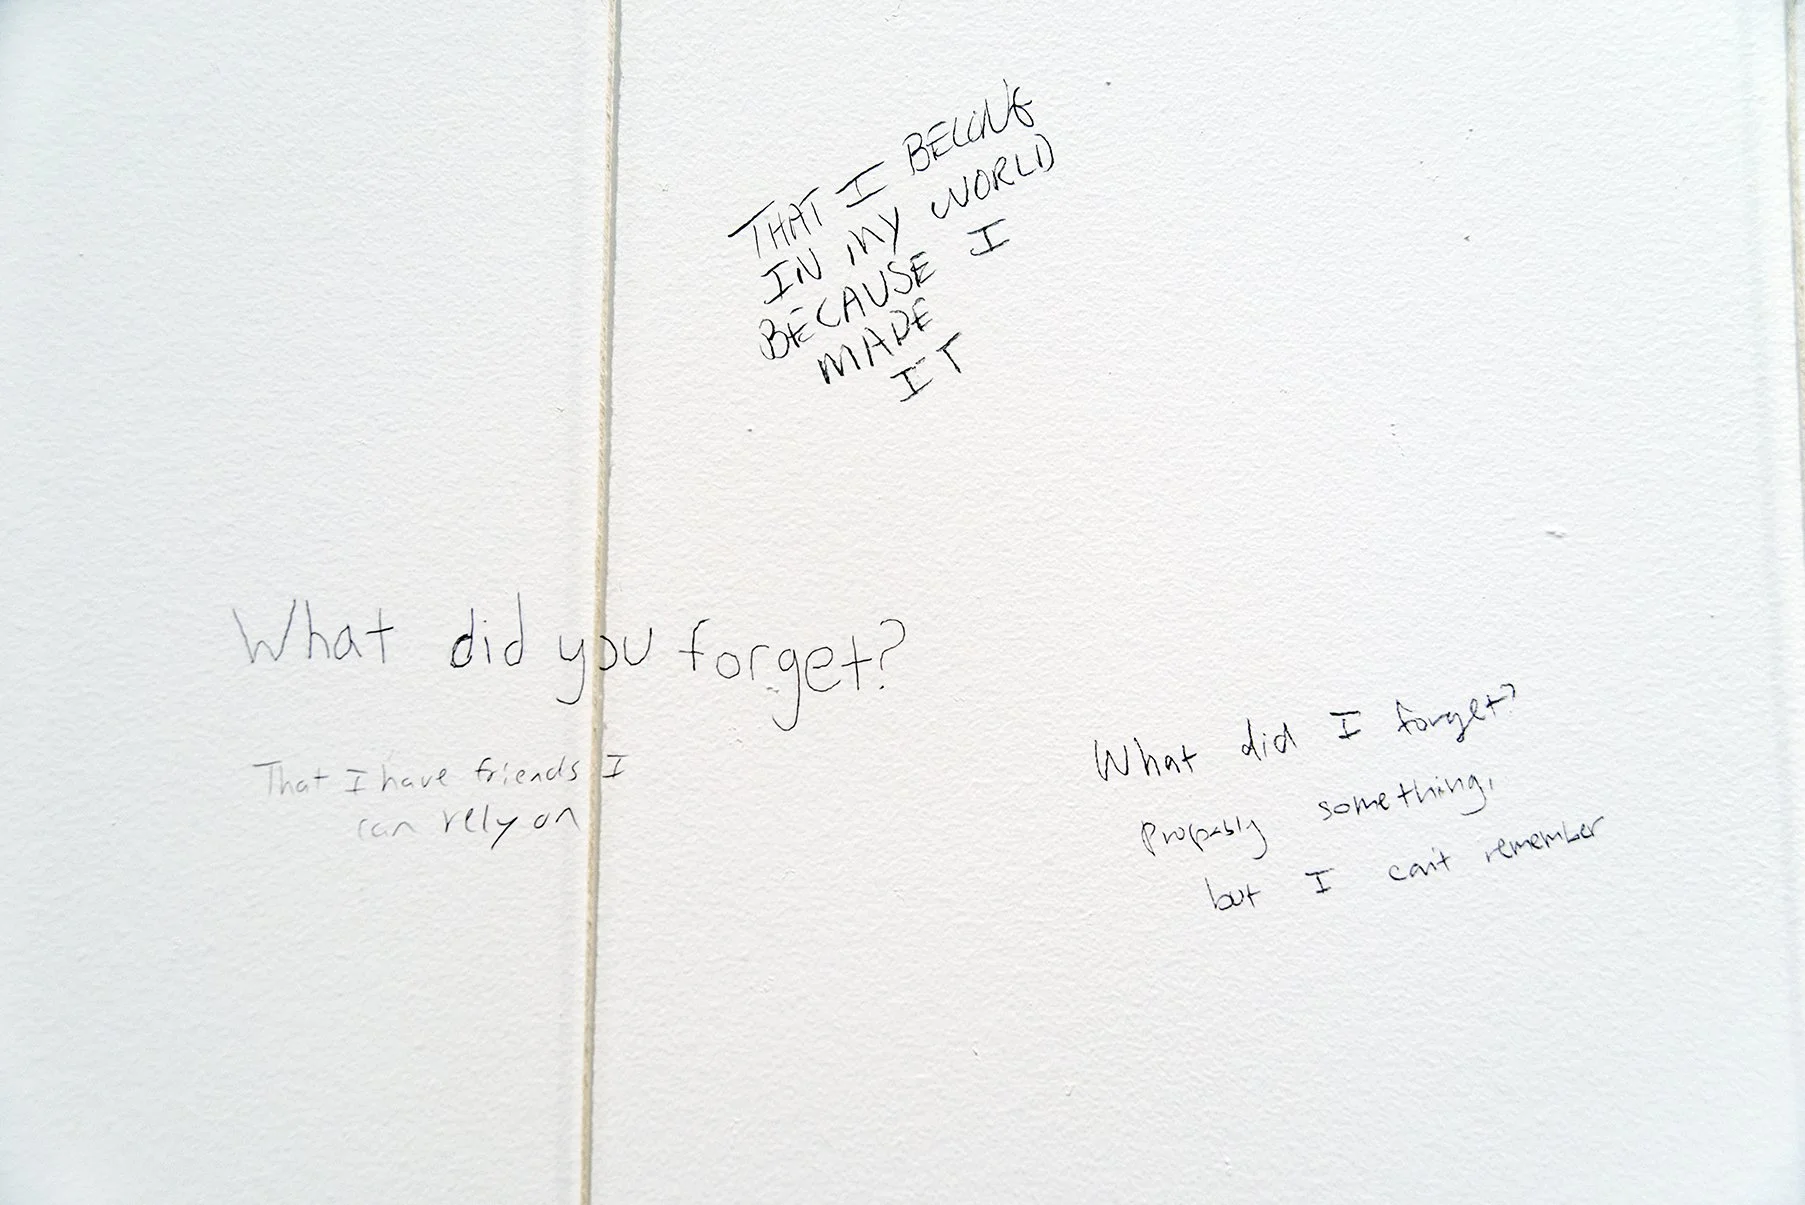 THAT I BELONG
IN MY WORLD
BECAUSE I
MADE
IT
What did you forget?
That I have friends I
can rely on
What did I forget?
Propably something,
but I can't remember